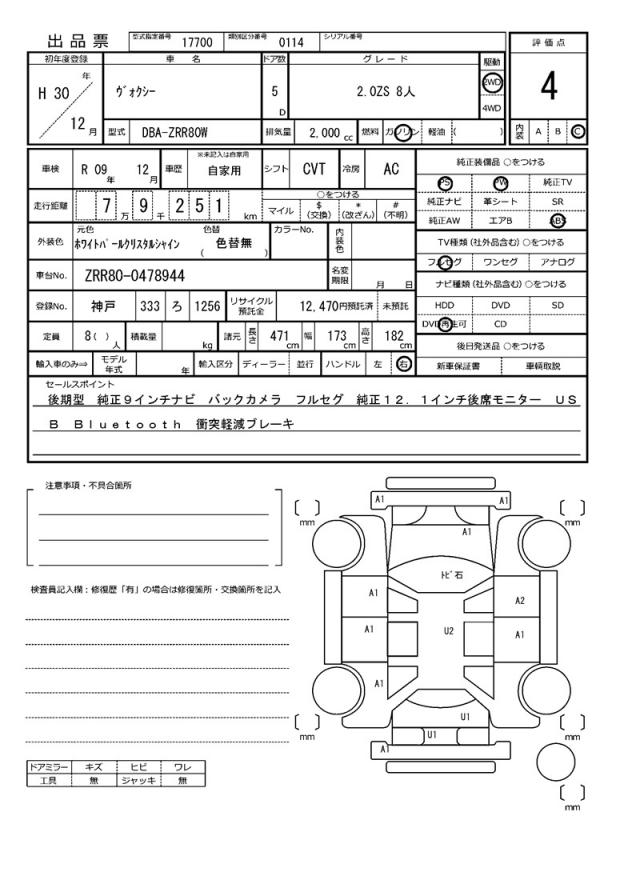 出品票 型式指定番号 17700 類別区分番号 0114 シリアル番号
評価点
4
内装 A B C
初年度登録 車名 ドア数 グレード 駆動
H 30 年 12 月 ヴォクシー 5 D 2.0ZS 8人 2WD 4WD
型式 DBA-ZRR80W 排気量 2,000 cc 燃料 ガソリン 軽油 ( )
車検 R 09 年 12 月 車歴 ※未記入は自家用 自家用 シフト CVT 冷房 AC
走行距離 7 万 9 千 2 5 1 km ○をつける マイル $ (交換) * (改ざん) # (不明)
外装色 元色 ホワイトパールクリスタルシャイン 色替 ( 色替無 ) カラーNo. 内装色
車台No. ZRR80-0478944 名変期限 月 日
登録No. 神戸 333 ろ 1256 リサイクル預託金 12,470円預託済 未預託
定員 8( ) 人 積載量 kg 諸元 長さ 471 cm 幅 173 cm 高さ 182 cm
輸入車のみ⇒ モデル年式 年 輸入区分 ディーラー 並行 ハンドル 左 右
純正装備品 ○をつける
PS PW 純正TV
純正ナビ 革シート SR
純正AW エアB ABS
TV種類 (社外品含む) ○をつける
フルセグ ワンセグ アナログ
ナビ種類 (社外品含む) ○をつける
HDD DVD SD
DVD再生可 CD
後日発送品 ○をつける
新車保証書 車輌取説
セールスポイント
後期型 純正9インチナビ バックカメラ フルセグ 純正12.1インチ後席モニター US
B Bluetooth 衝突軽減ブレーキ
注意事項・不具合箇所
検査員記入欄：修復歴「有」の場合は修復箇所・交換箇所を記入
ドアミラー キズ ヒビ ワレ
工具 無 ジャッキ 無
A1 A1
mm mm
A1
トビ石
A1 A2
A1 U2 A1
A1
U1
mm U1 mm
A1
mm